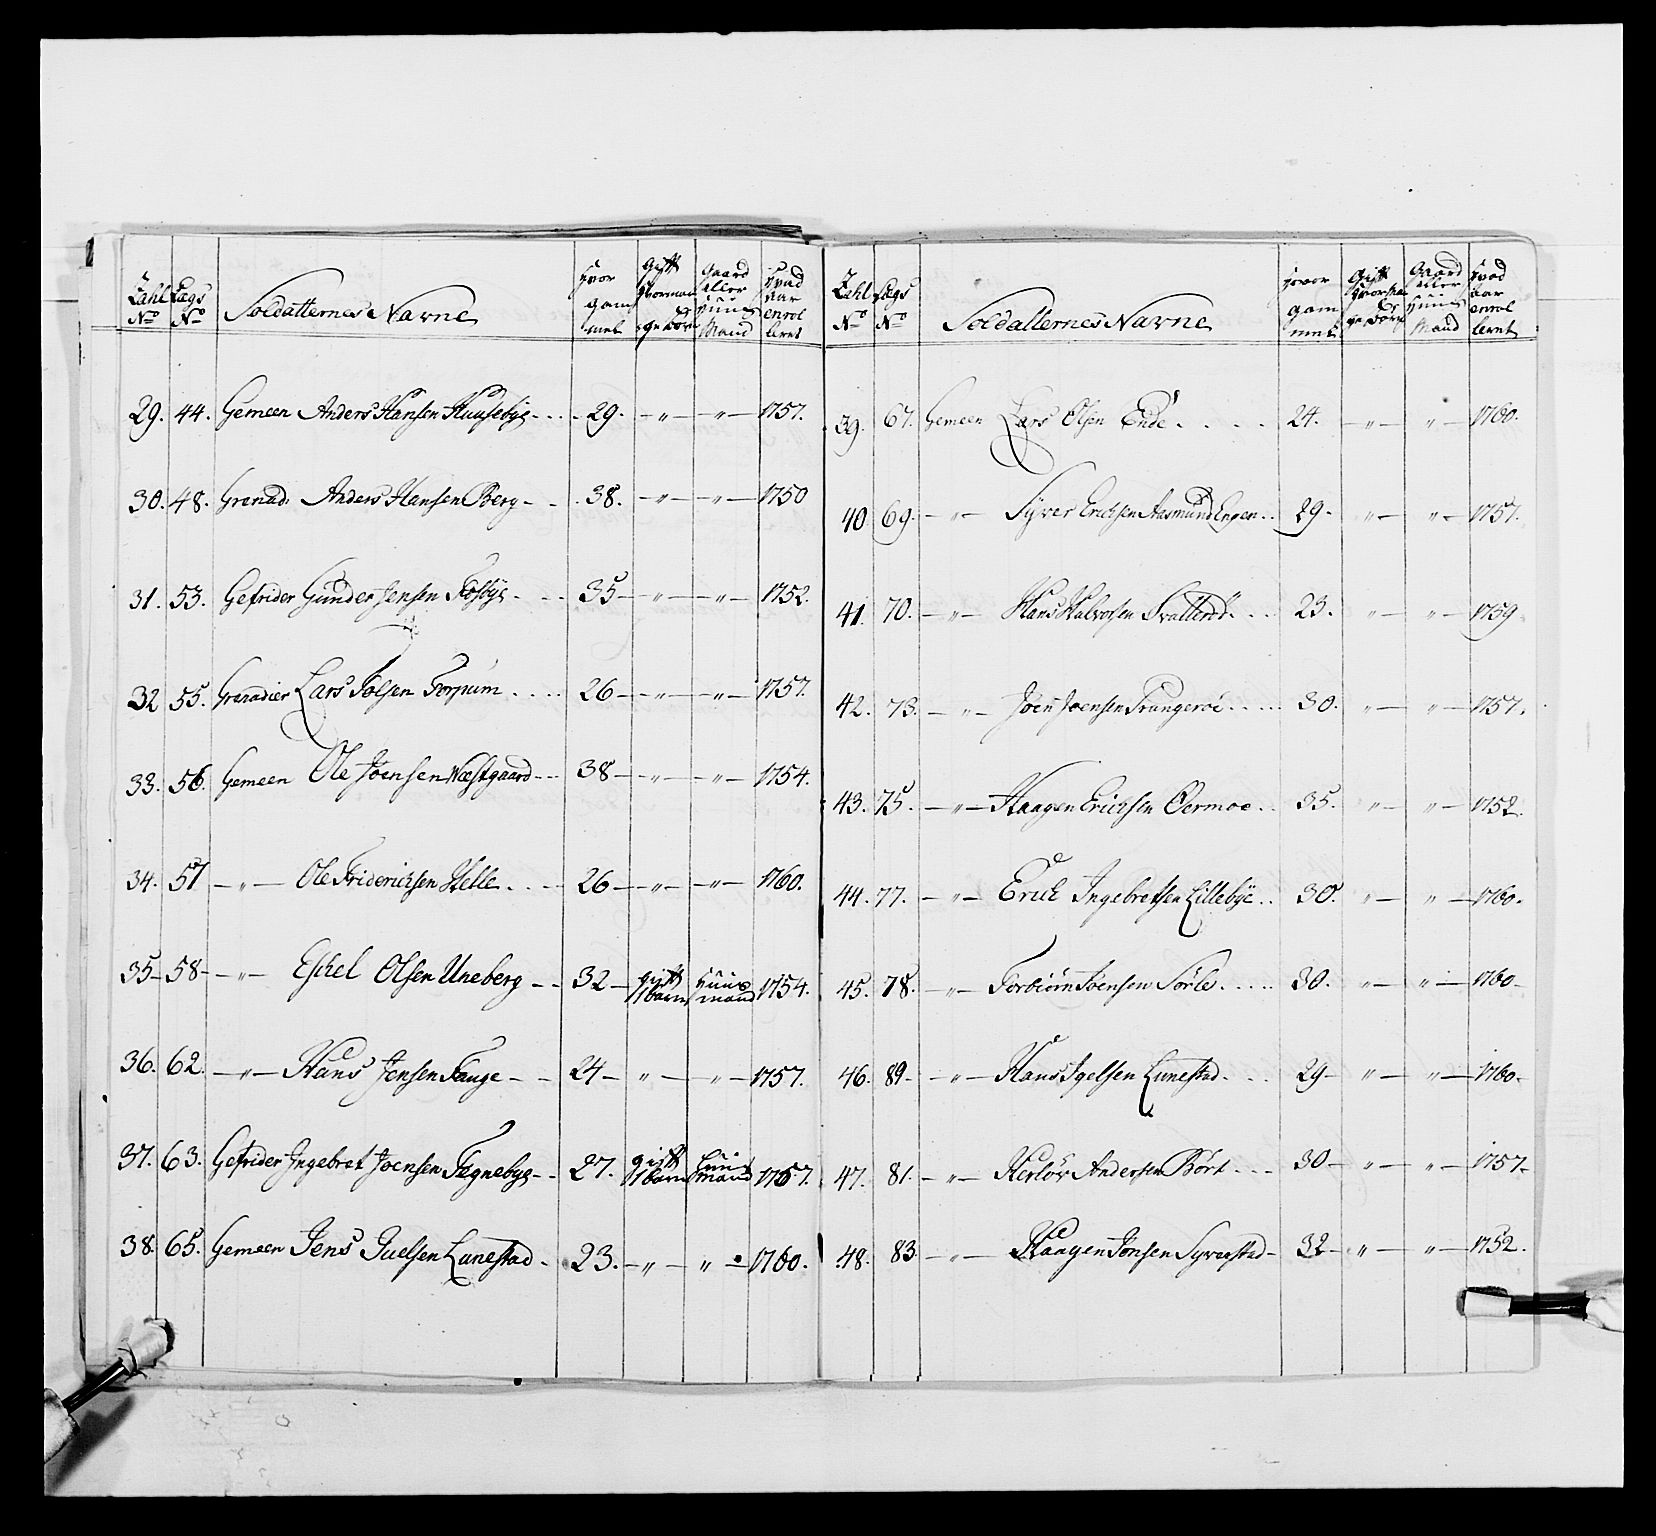 Zahl No Lægs No Soldatternes Navne Hvor gammel Gift Hvormange Börn Gaard eller Huus Mand Hvad aar enrolleret
29. 44. Gemeen Anders Hansen Huusebye - . . 29. - " - " - 1757.
30. 48. Grenad. Anders Hansen Berg - - . 38. - " - " - 1750
31. 53. Gefrider Gunder Jensen Fosbye - . - 35 - " - " - 1752.
32 55. Grenadier Lars Tolsen Torpum . . . . 26 - " - " - 1757.
33. 56. Gemeen Ole Joensen Næstgaard - - - 38 - " - " - 1754.
34. 57 - " - Ole Friderichsen Helle . . - - 26 - " - " - 1760.
35 - 58 - - " - Eschel Olsen Uneberg - - 32 - gift 1 barn Huusmand 1754.
36. 62. - " - Hans Jensen Fange - - 24 - " - " - 1757.
37. 63. Gefrider Ingebret Joensen Tegnebye - - 27. gift 1 barn Huusmand 1757.
38. 65. Gemeen Jens Juelsen Lunestad - 23. - " - " - 1760.
Zahl No Lægs No Soldatternes Navne Hvor gammel Gift Hvormange Börn Gaard eller Huus Mand Hvad aar enrollert
39. 67. Gemeen Lars Olsen Ende . . . . 24. - " - " - 1760.
40 69. - " - Syver Erichsen Aasmund Engen . . 29 - " - " - 1757.
41. 70. - " - Hans Halvorsen Svatteröd . . . 23. " - " - 1759
42. 73. - " - Joen Joensen Prangeröe . . . . . 30. " - " - 1757.
43. 75. - " - Haagen Erichsen Oermoe . . 35. " - " - 1752.
44. 77. - " - Erich Ingebretsen Lillebye . . 30. " - " - 1760.
45. 78. - " - Torbiörn Joensen Sörlie . . . . . 30. " - " - 1760 -
46. 89 - - " - Hans Igelsen Lunestad . . . 29 - " - " - 1760 -
47. 81. - " - Herlöv Andersen Bört . . . 30 - " - " - 1757 -
48. 83 - " - Haagen Jonsen Syverstad - 32 - " - " - 1752.